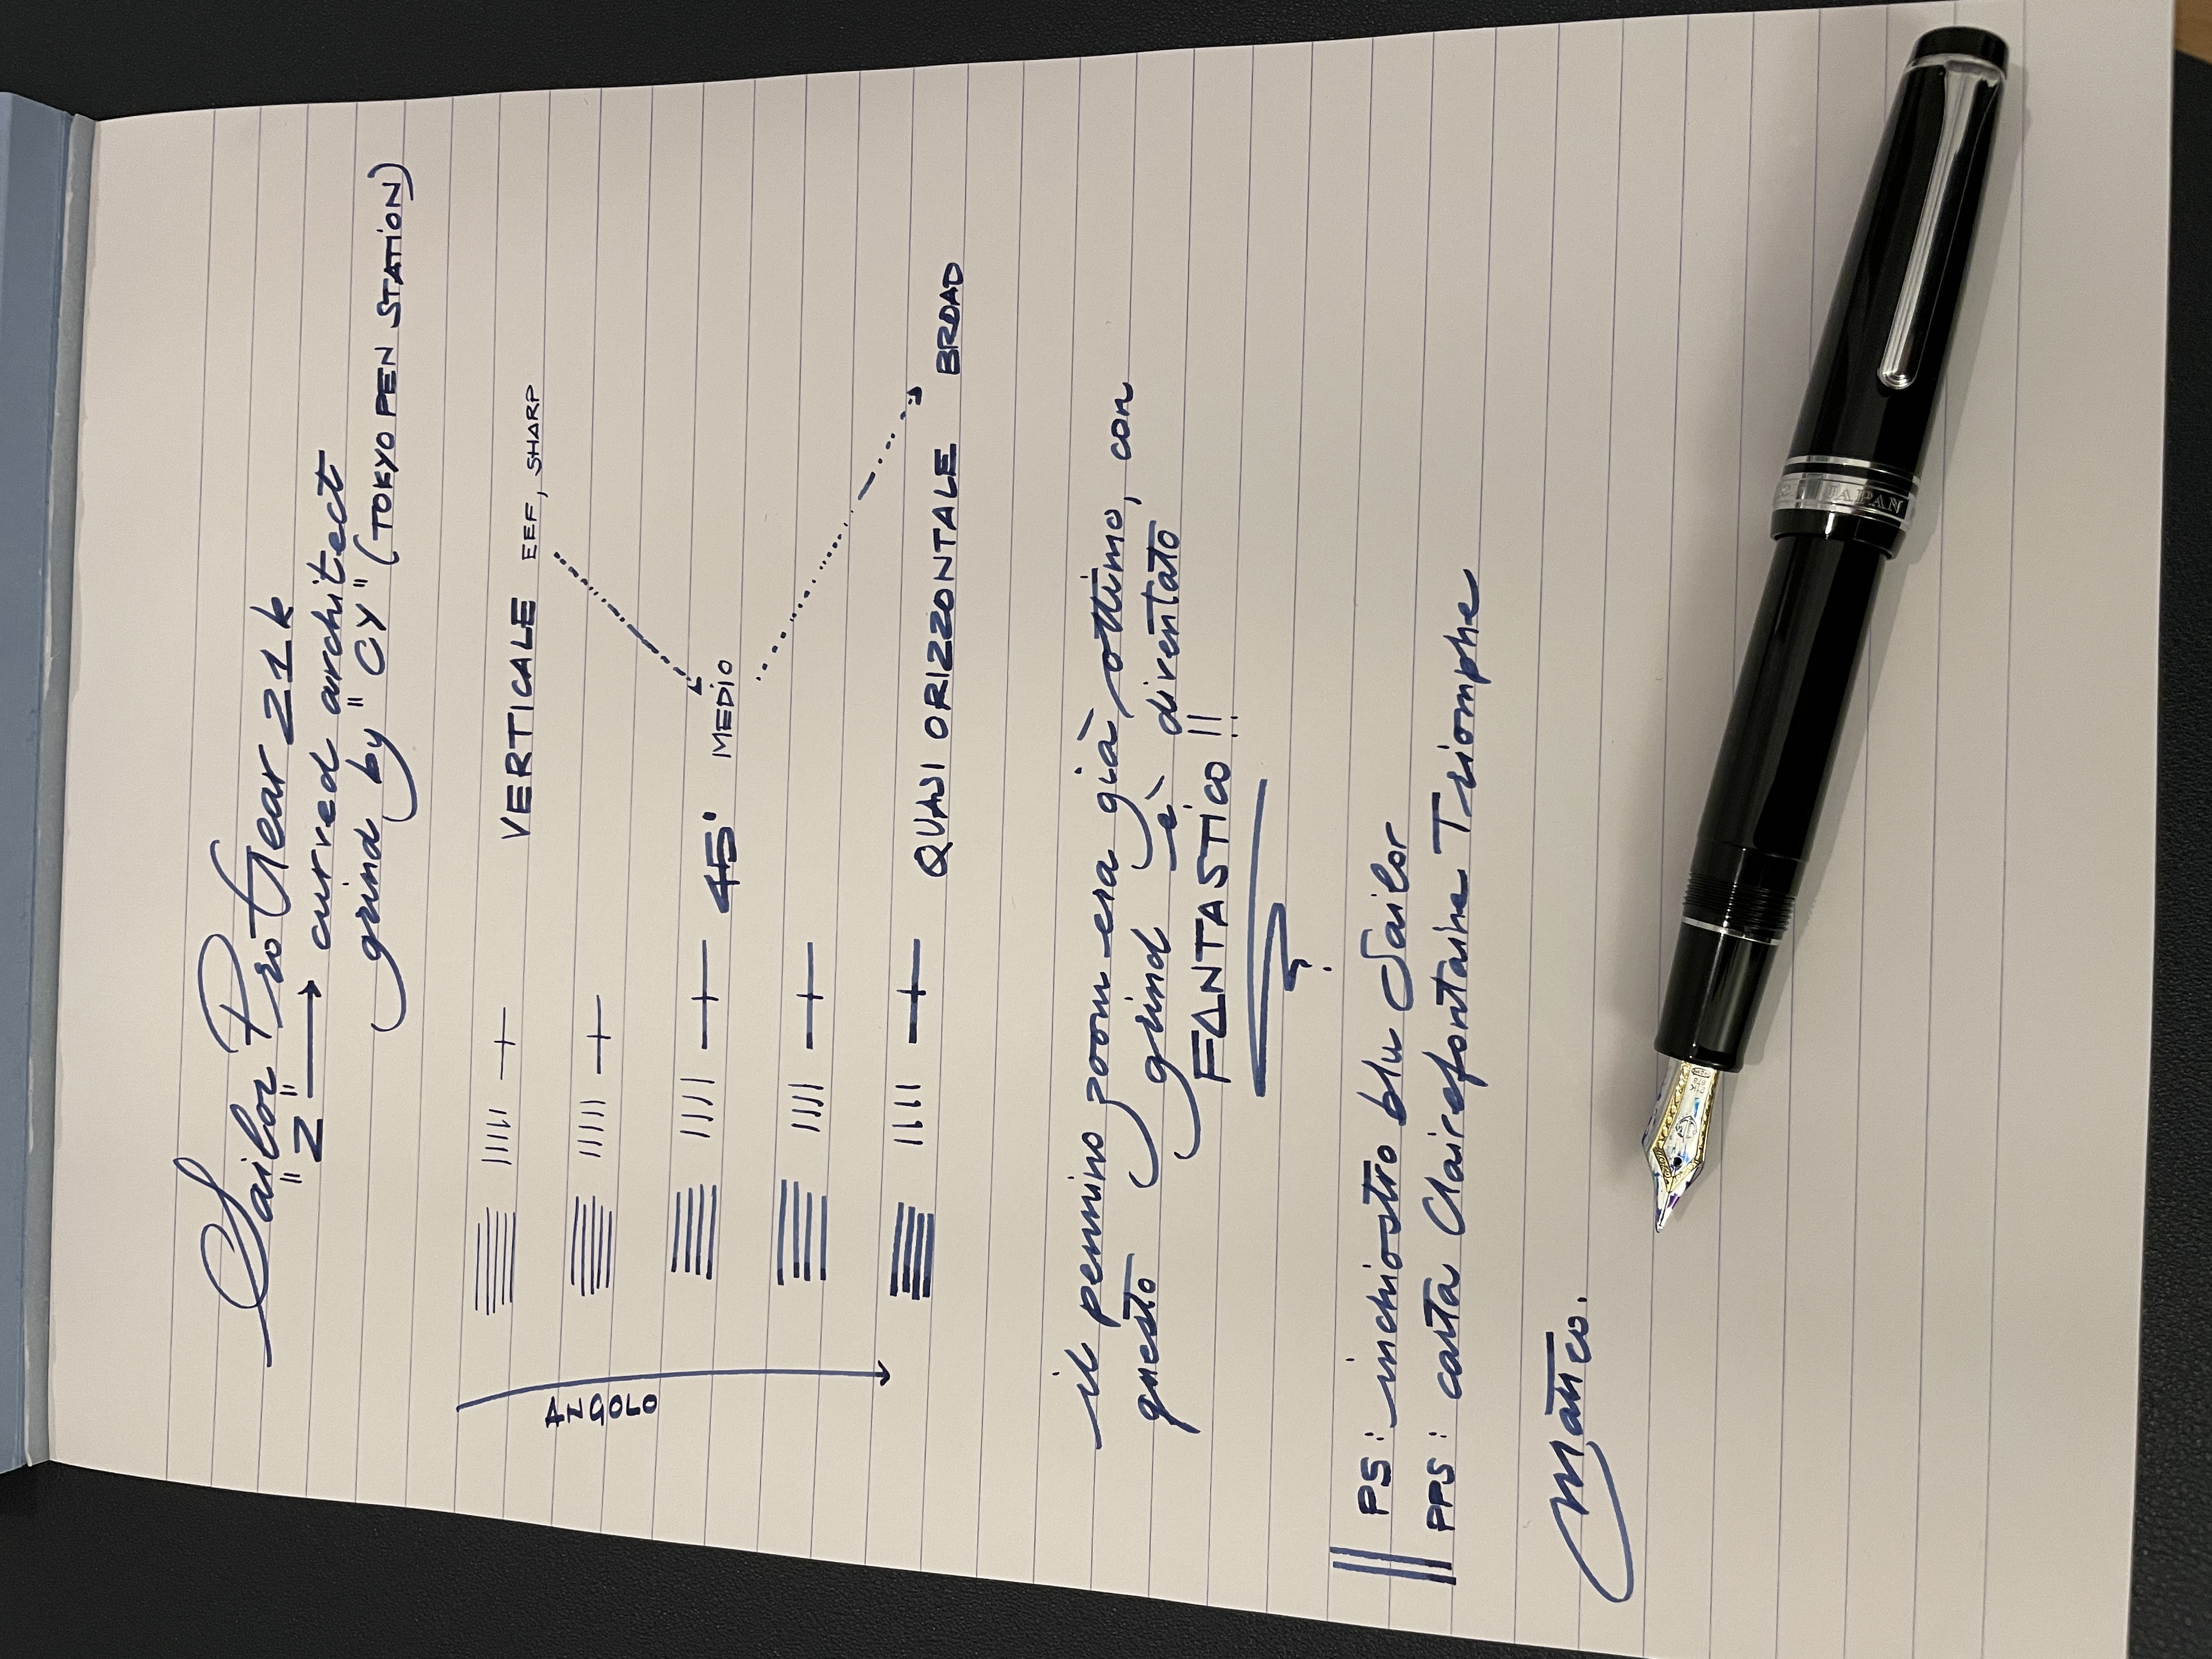 Sailor ProGear 21k
"Z" → curved architect
grind by "CY" (TOKYO PEN STATION)
VERTICALE EEF, SHARP
45° MEDIO
QUASI ORIZZONTALE BROAD
ANGOLO
il pennino zoom era già ottimo, con
questo grind è diventato
FANTASTICO!!
PS: inchiostro blu Sailor
PPS: carta Clairefontaine Triomphe
matteo.
JAPAN